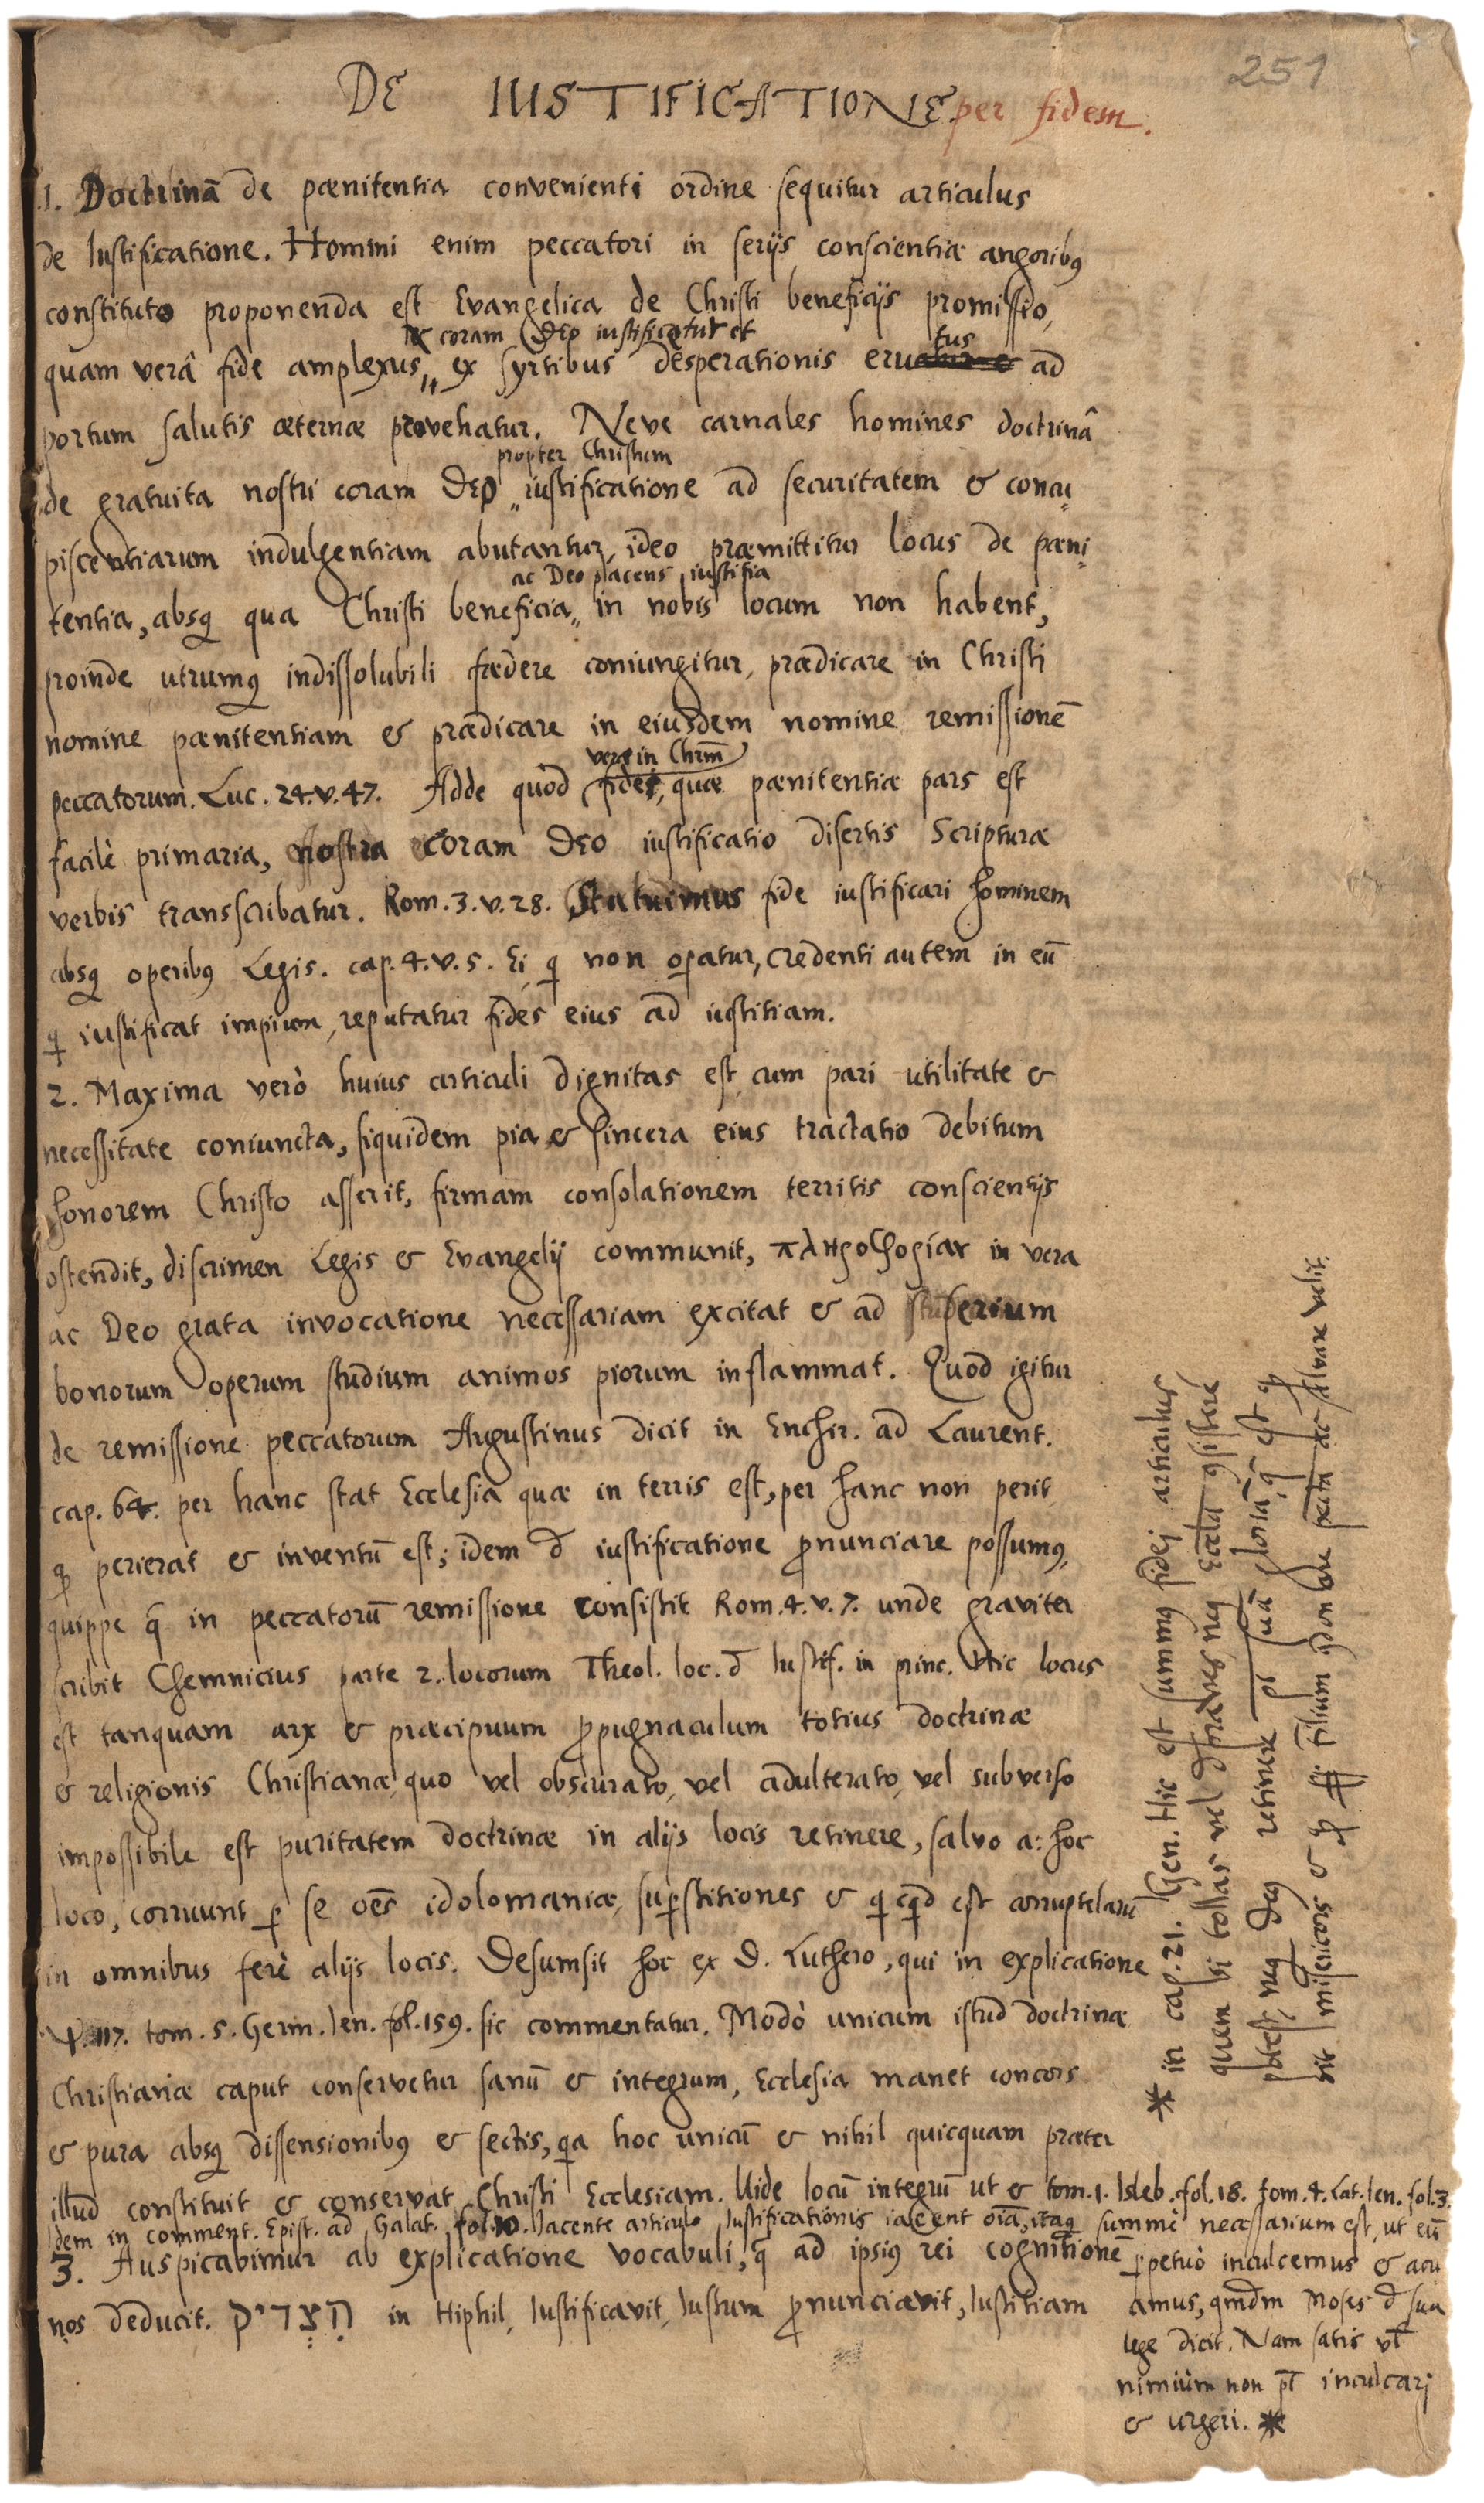 251
DE IUSTIFICATIONE per fidem.
1. Doctrinā de pœnitentia convenienti ordine sequitur articulus
de Iustificatione. Homini enim peccatori in serijs conscientiæ angoribꝰ
constituto proponenda est Evangelica de Christi beneficijs promissio,
& coram Deo iustificatur et tus
quam verâ fide amplexus,, ex syrtibus desperationis eruatur e ad
portum salutis æternæ provehatur. Neve carnales homines doctrinâ
propter Christum
de gratuita nostri coram DEO,, iustificatione ad securitatem & concu
piscentiarum indulgentiam abutantur, ideo præmittitur locus de pœni
ac Deo placens iustitia
tentia, absqꝫ qua Christi beneficia,, in nobis locum non habent,
proinde utrumqꝫ indissolubili fœdere coniungitur, prædicare in Christi
nomine pœnitentiam & prædicare in eiusdem nomine remissionē
veræ in Chrm̄
peccatorum. Luc. 24. v. 47. Adde quod fidei, quæ pœnitentiæ pars est
facilè primaria, nostra coram DEO iustificatio disertis Scripturæ
verbis transscribatur. Rom. 3. v. 28. Statuimus fide iustificari hominem
absqꝫ operibꝰ Legis. cap. 4. v. 5. Ei, q̣ non oꝑatur, credenti autem in eū
q̣ iustificat impium, reputatur fides eius ad iustitiam.
2. Maxima verò huius articuli dignitas est cum pari utilitate &
necessitate coniuncta, siquidem pia & sincera eius tractatio debitum
honorem Christo asserit, firmam consolationem territis conscientijs
ostendit, discrimen Legis & Evangelij communit, πληροφορίαν in vera
ac Deo grata invocatione necessariam excitat & ad serium
bonorum operum studium animos piorum inflammat. Quod igitur
de remissione peccatorum Augustinus dicit in Enchir. ad Laurent.
cap. 64. per hanc stat Ecclesia quæ in terris est, per hanc non perit
qꝫ perierat & inventū est; idem đ iustificatione ꝓnunciare possumꝰ,
quippe q̄ in peccatorū remissione consistit Rom. 4. v. 7. unde graviter
scribit Chemnicius parte 2. locorum Theol. loc. đ Iustif. in princ. Hic locus
est tanquam arx & præcipuum ꝓpugnaculum totius doctrinæ
& religionis Christianæ, quo vel obscurato, vel adulterato, vel subverso
impossibile est puritatem doctrinæ in alijs locis retinere, salvo a: hoc
loco, corruunt ꝑ se oēs idolomaniæ, suꝑstitiones & q̣cq̣d est corruptelarū
in omnibus ferè alijs locis. Desumsit hoc ex D. Luthero, qui in explicatione
ψ. 117. tom. 5. Germ. Ien. fol. 159. sic commentatur. Modò unicum istud doctrinæ
Christianæ caput conservetur sanū & integrum, Ecclesia manet concors
& pura absqꝫ dissensionibꝰ & sectis, q̣a hoc unicū & nihil quicquam præter
illud constituit & conservat Christi Ecclesiam. Vide locū integrū ut & tom. 1. Isleb. fol. 18. tom. 4. Lat. Ien. fol. 3.
Idem in comment. Epist. ad Galat. fol. 10. Iacente articulo Iustificationis iacent oīa, itaqꝫ summè necessarium est, ut eū
ꝑpetuò inculcemus & acu
amus, qmdm Moses đ sua
lege dicit. Nam satis vl̄
nimiùm non pt̄ inculcari
& urgeri. *
3. Auspicabimur ab explicatione vocabuli, q̄ ad ipsiꝰ rei cognitionē
nos deducit. הִצְדִיק in Hiphil, Iustificavit, Iustum ꝓnunciavit, Iustitiam
* in cap. 21. Gen. Hic est summꝰ fidej articulus
quem si tollas vel đpraves, neqꝫ Eccła ꝯsistere
potest, neqꝫ Deꝰ retinere pt̄ suā gloriā, q̄ est qꝫ
sit misericors & qꝫ ꝓpter Filium ꝯdonare pctā ac salvare velit.